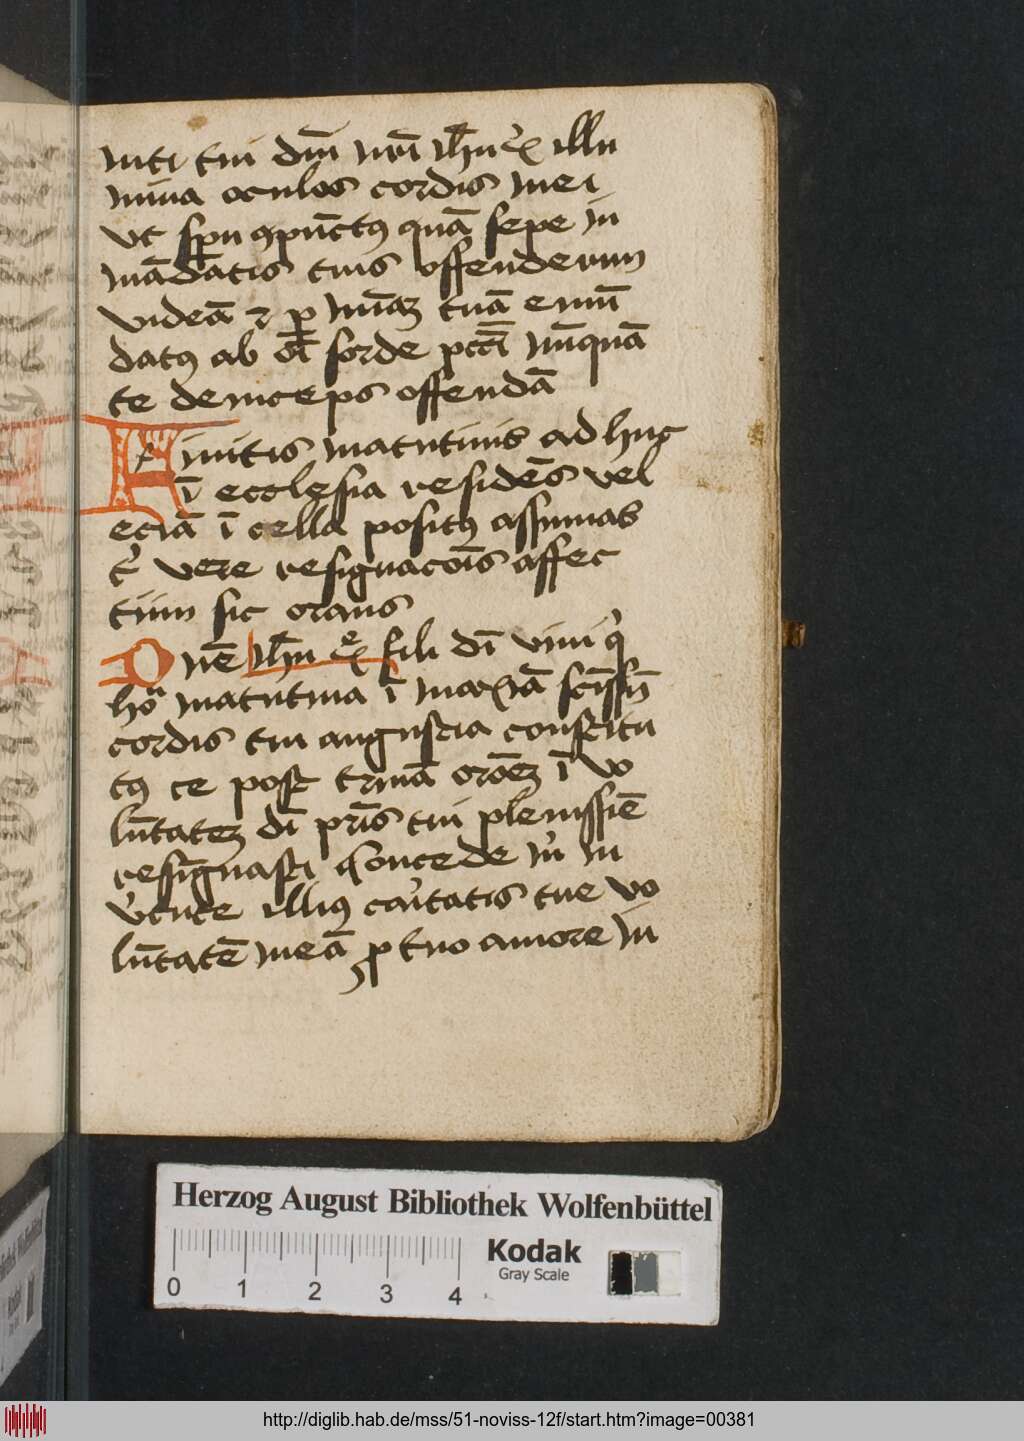 niti tui dn̄i nrī ih̄u x̄ illu
mina oculos cordis mei
vt sp̄u ꝯpūctꝰ quā sepe in
mādatis tuis offenderim
videā ⁊ ꝑ mīaꝫ tuā emū
datꝰ ab oī sorde pcc̄i nūquā
te deinceps offendā
Finitis matutinis adhuc
ī ecclesia residēs vel
eciā ī cella positꝰ assumas
t' vere resignacōis affec
tum sic orans
One ih̄u xe fili dī viui q'
hoͣ matutina ī maxīa
cordis tui angustia constitu
tꝰ te post trinā orōeꝫ ī vo
lūtateꝫ dī pr̄is tui plenissīe
resignasti Concede m' in
v'tute illiꝰ ca'itatis tue vo
lūtatē meā ꝓ tuo amore in
Herzog August Bibliothek Wolfenbüttel
Kodak
Gray Scale
0 1 2 3 4
http://diglib.hab.de/mss/51-noviss-12f/start.htm?image=00381